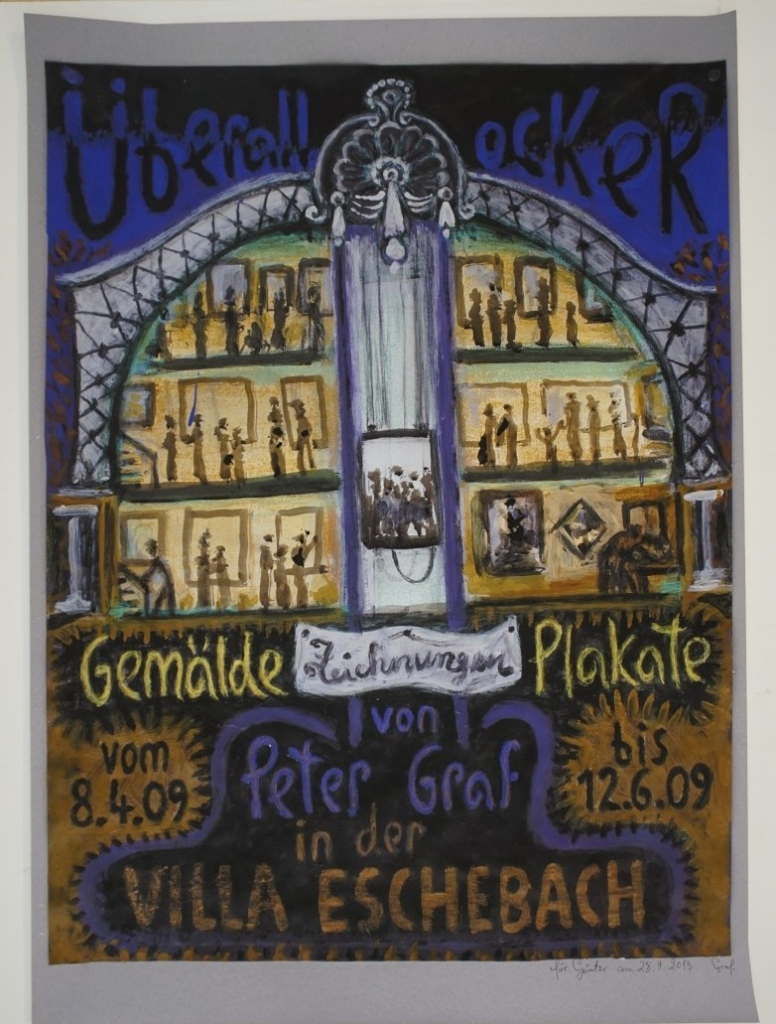 Überall ocker
Gemälde Zeichnungen Plakate
von
vom bis
8.4.09 Peter Graf 12.6.09
in der
VILLA ESCHEBACH
für Günter am 28.9.2013 Graf